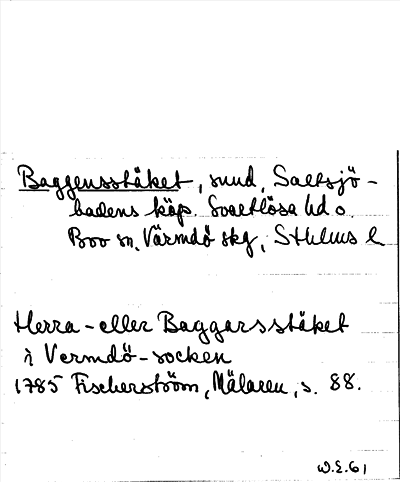 Baggensstäket, sund, Saltsjö-
badens köp. Svartlösa hd o.
Boo sn, Värmdö skg, Sthlms l
Herra- eller Baggarsstäket
i Vermdö-socken
1785 Fischerström, Mälaren, s. 88.
W.E. 61